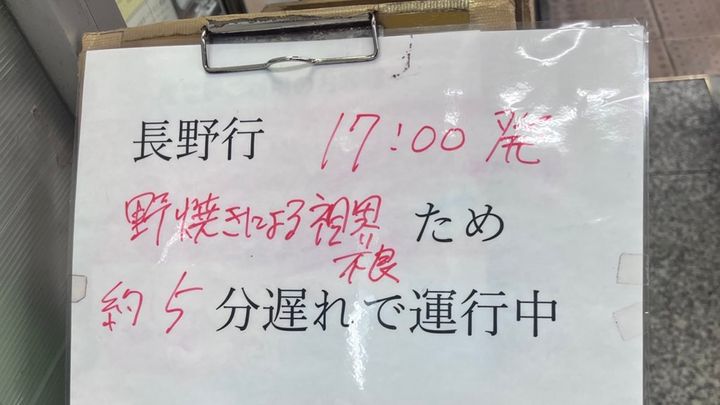 長野行 17:00発
野焼きによる視界不良 ため
約5分遅れで運行中